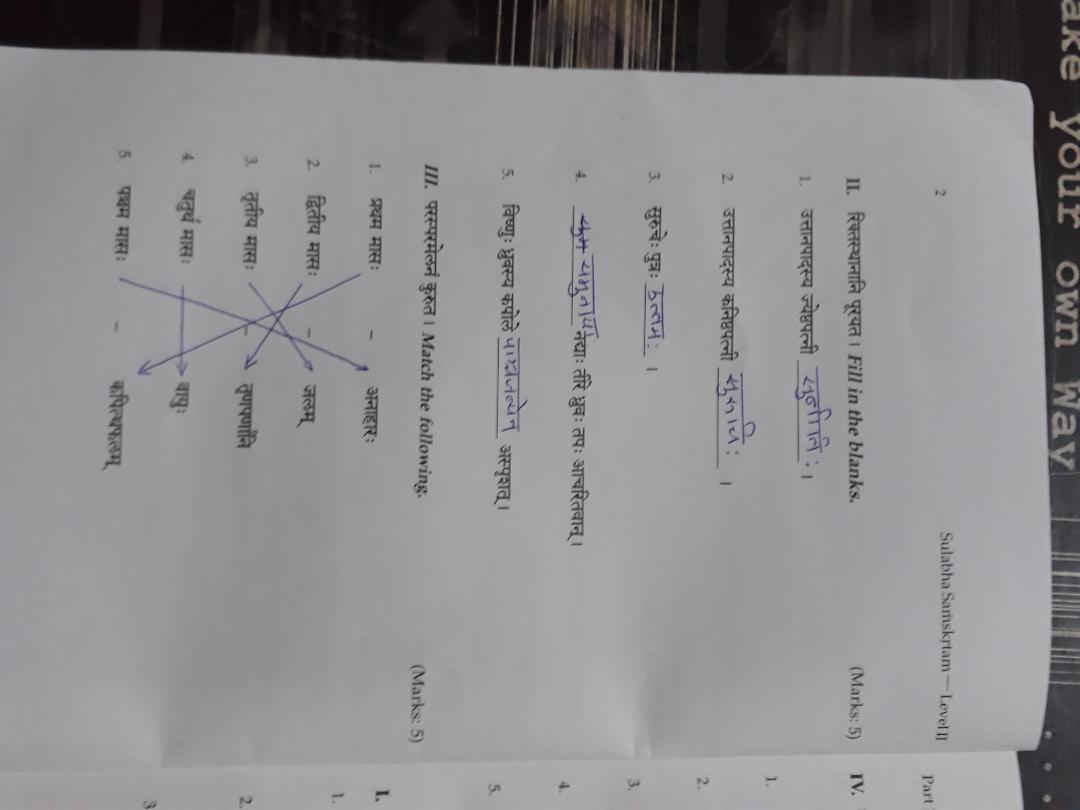 ake your own Way
2 Sulabha Saṁskṛtam — Level II
Part
II. रिक्तस्थानानि पूरयत। Fill in the blanks. (Marks: 5)
IV.
1. उत्तानपादस्य ज्येष्ठपत्नी सुनीतिः।
1.
2. उत्तानपादस्य कनिष्ठपत्नी सुरुचिः।
2.
3. सुरुचेः पुत्रः उत्तमः।
3.
4. यमुनायाः नद्याः तीरे ध्रुवः तपः आचरितवान्।
4.
5. विष्णुः ध्रुवस्य कपोले पाञ्चजन्येन अस्पृशत्।
5.
III. परस्परमेलनं कुरुत। Match the following. (Marks: 5)
I.
1. प्रथम मासः – अनाहारः
1.
2. द्वितीय मासः – जलम्
3. तृतीय मासः – तृणपर्णानि
2.
4. चतुर्थ मासः वायुः
3
5. पञ्चम मासः – कपित्थफलम्